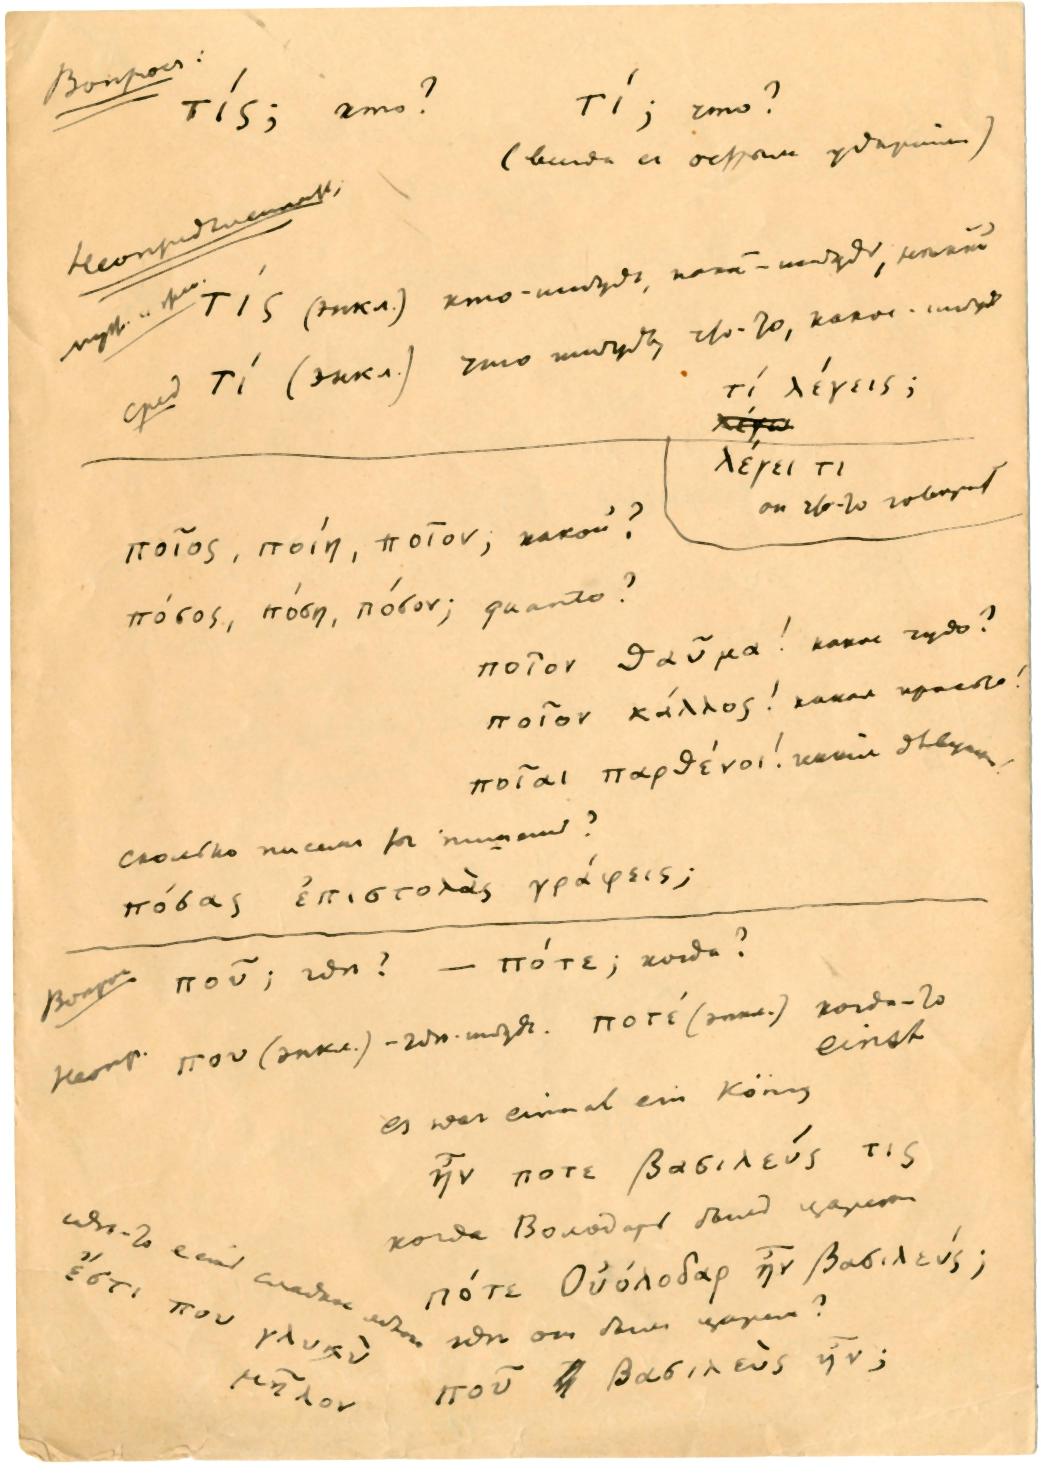 Вопрос:
τίς; кто? τί; что?
(всегда с острым ударением)
Неопределенный
муж. и жен. τίς (энкл.) кто-нибудь, какой-нибудь, некий
сред τί (энкл.) что нибудь, что-то, какое-нибудь
τί λέγεις;
λέγω
λέγει τι
он что-то говорит
ποῖος, ποίη, ποῖον; какой?
πόσος, πόση, πόσον; quanto?
ποῖον θαῦμα! какое чудо?
ποῖον κάλλος! какая красота!
ποῖαι παρθένοι! какие девушки!
сколько писем ты пишешь?
πόσας ἐπιστολὰς γράφεις;
Вопрос ποῦ; где? — πότε; когда?
Неопр. που (энкл.) - где-нибудь. ποτέ (энкл.) когда-то
einst
es war einmal ein König
ἦν ποτε βασιλεύς τις
когда Володарь был царем
πότε Οὐόλοδαρ ἦν βασιλεύς;
где он был царем?
ποῦ βασιλεὺς ἦν;
где-то есть сладкое яблоко
ἔστι που γλυκὺ
μῆλον